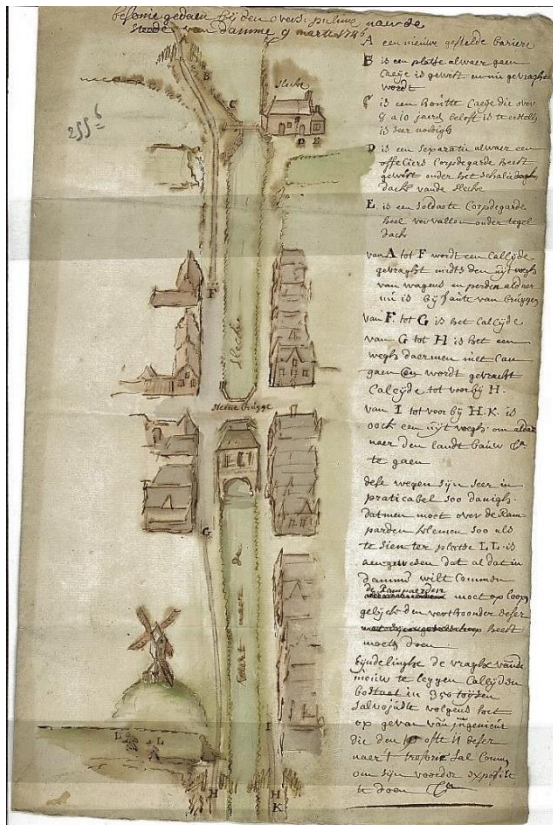 stede van damme 9 martii
A een nieuwe gestelde bariere
B is een platse alwaer een
Caeye is geweest en nu gevraeght
wordt
C is een houtte Caeye die over
9 a 10 jaeren belooft is te
is seer noodigh
D is een separatie alwaer een
officiers Corpdegarde heeft
geweest onder het
dack vande sluse
E is een Soldaete Corpdegarde
heel vervallen onder tegel
dack
van A tot F wordt een Callsyde
gevraght midts den uyt wegh
van wagens en peerden aldaer
nu is by faute van brugge
van F tot G is het Callsyde
van G tot H is het een
wegh daermen niet Can
gaen en wordt gevraeght
Calsyde tot voor by H.
van I tot voor by H.K. is
oock een uyt wegh om aldaer
naer den landt bauw &a
te gaen
dese wegen syn seer in
praticabel soo danigh
datmen moet over de Ram-
parden klemen soo als
te sien ter plaetse LL is
aengewesen dat al dat in
damme wilt Commen
de Rampaerden
moet op loopen
gelyck den verthoonder deser
heeft
moeten doen
Eyndelinghe de vraghe vande
nieuw te leggen Callsyden
bestaet in 350 toysen
volgens het
op geven van jngenieur
die den 10 ofte 11 deser
naer t sal Comen
om syn voorder
te doen &a
255
B
C
sluse
D E
F
sluse
steene brugge
G
de
naer
vaert
L L
A
I
H
H
K